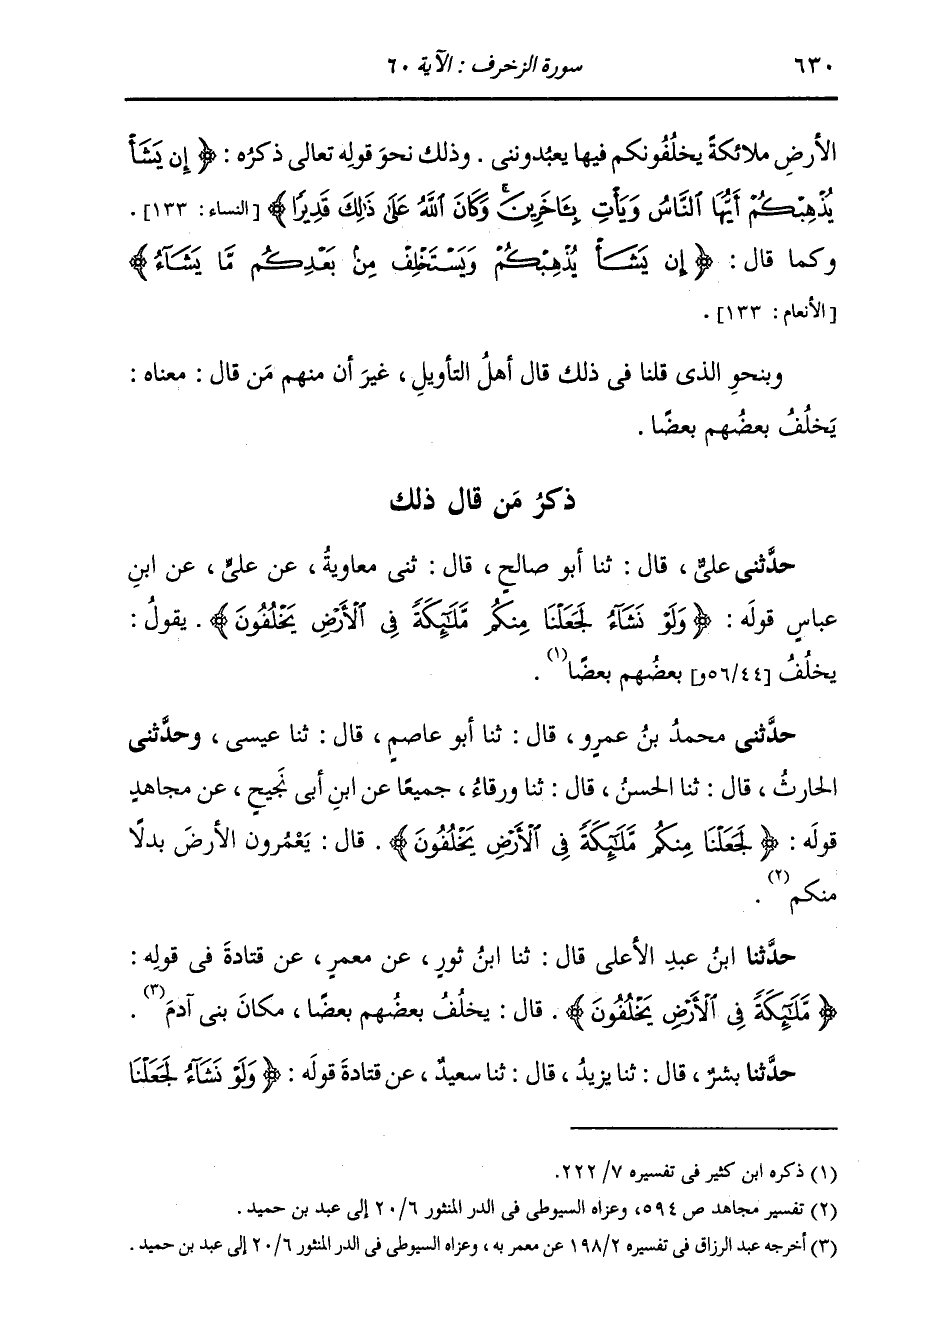 ٦٣٠ سورة الزخرف : الآية ٦٠
الأرضِ ملائكةً يخلُفُونكم فيها يعبُدوننى . وذلك نحوَ قولِه تعالى ذكرُه : ﴿ إِن يَشَأْ
يُذْهِبْكُمْ أَيُّهَا ٱلنَّاسُ وَيَأْتِ بِـَٔاخَرِينَۚ وَكَانَ ٱللَّهُ عَلَىٰ ذَٰلِكَ قَدِيرًا ﴾ [النساء : ١٣٣] .
وكما قال : ﴿ إِن يَشَأْ يُذْهِبْكُمْ وَيَسْتَخْلِفْ مِنۢ بَعْدِكُم مَّا يَشَآءُ ﴾
[الأنعام : ١٣٣] .
وبنحوِ الذى قلنا فى ذلك قال أهلُ التأويلِ ، غيرَ أن منهم مَن قال : معناه :
يَخلُفُ بعضُهم بعضًا .
ذكرُ مَن قال ذلك
حدَّثنى علىٌّ ، قال : ثنا أبو صالحٍ ، قال : ثنى معاويةُ ، عن علىٍّ ، عن ابنِ
عباسٍ قولَه : ﴿ وَلَوْ نَشَآءُ لَجَعَلْنَا مِنكُم مَّلَـٰٓئِكَةً فِى ٱلْأَرْضِ يَخْلُفُونَ ﴾ . يقولُ :
يخلُفُ [٥٦/٤٤و] بعضُهم بعضًا(١) .
حدَّثنى محمدُ بنُ عمرٍو ، قال : ثنا أبو عاصمٍ ، قال : ثنا عيسى ، وحدَّثنى
الحارثُ ، قال : ثنا الحسنُ ، قال : ثنا ورقاءُ ، جميعًا عن ابنِ أبى نَجيحٍ ، عن مجاهدٍ
قولَه : ﴿ لَجَعَلْنَا مِنكُم مَّلَـٰٓئِكَةً فِى ٱلْأَرْضِ يَخْلُفُونَ ﴾ . قال : يَعْمُرون الأرضَ بدلًا
منكم(٢) .
حدَّثنا ابنُ عبدِ الأعلى قال : ثنا ابنُ ثورٍ ، عن معمرٍ ، عن قتادةَ فى قولِه :
﴿ مَّلَـٰٓئِكَةً فِى ٱلْأَرْضِ يَخْلُفُونَ ﴾ . قال : يخلُفُ بعضُهم بعضًا ، مكانَ بنى آدمَ(٣) .
حدَّثنا بشرٌ ، قال : ثنا يزيدُ ، قال : ثنا سعيدٌ ، عن قتادةَ قولَه : ﴿ وَلَوْ نَشَآءُ لَجَعَلْنَا
(١) ذكره ابن كثير فى تفسيره ٧/ ٢٢٢.
(٢) تفسير مجاهد ص ٥٩٤، وعزاه السيوطى فى الدر المنثور ٢٠/٦ إلى عبد بن حميد .
(٣) أخرجه عبد الرزاق فى تفسيره ١٩٨/٢ عن معمر به ، وعزاه السيوطى فى الدر المنثور ٢٠/٦ إلى عبد بن حميد .